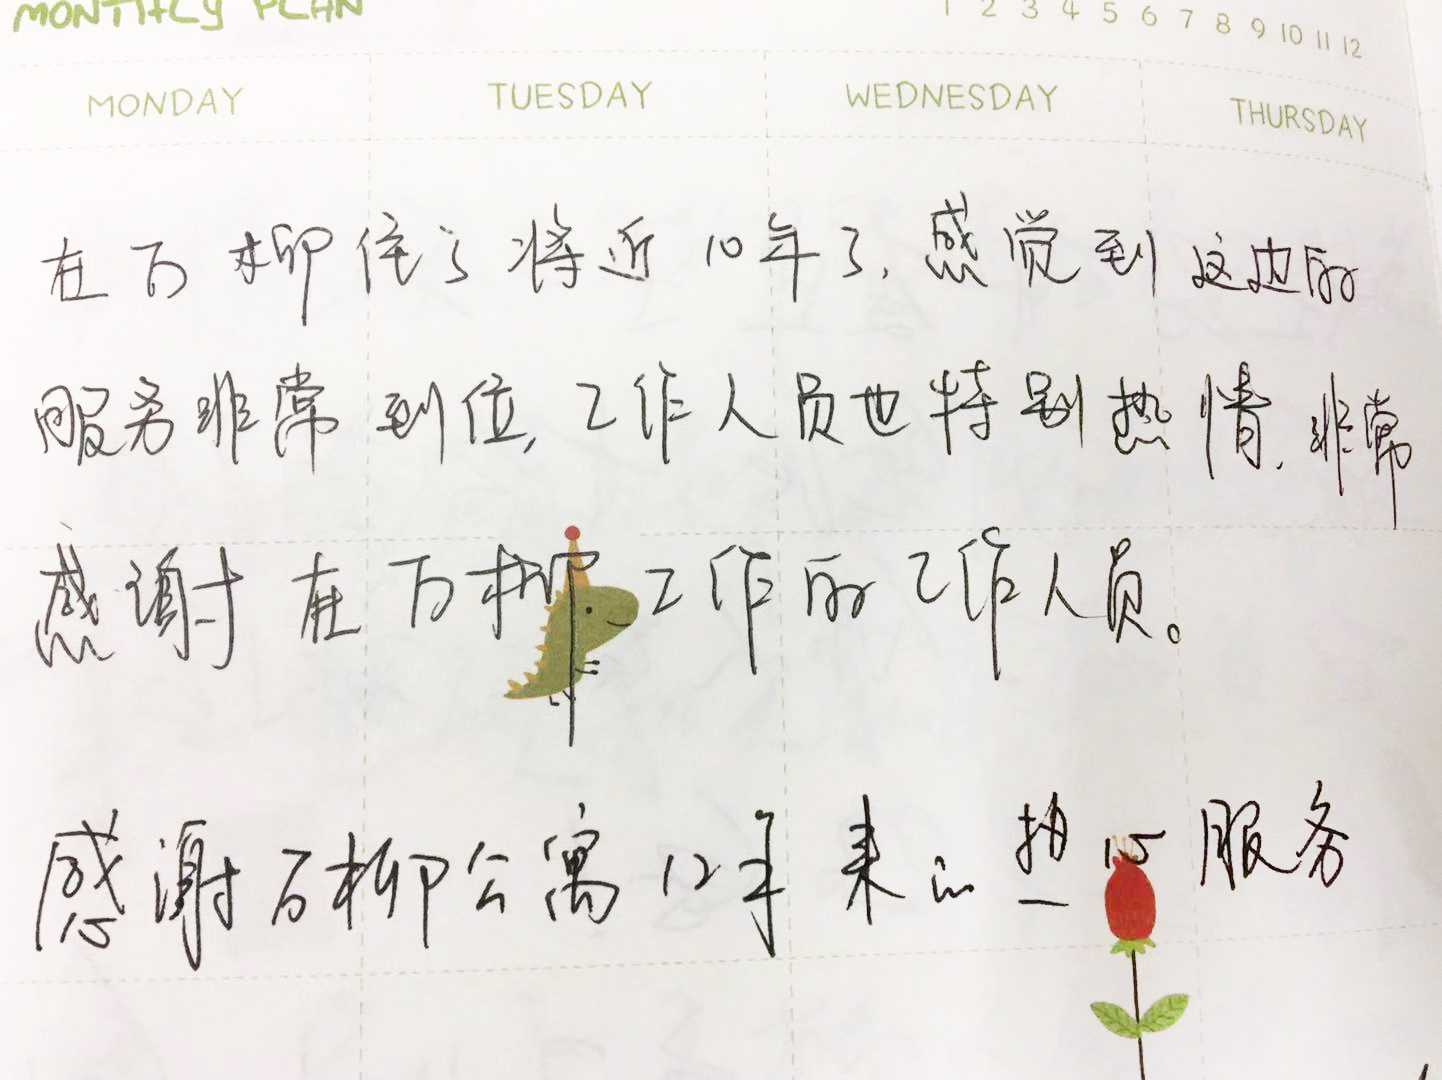 MONTHLY PLAN
1 2 3 4 5 6 7 8 9 10 11 12
MONDAY TUESDAY WEDNESDAY THURSDAY
在万柳住了将近10年了,感觉到这边的
服务非常到位,工作人员也特别热情,非常
感谢在万柳工作的工作人员。
感谢万柳公寓12年来的热心服务